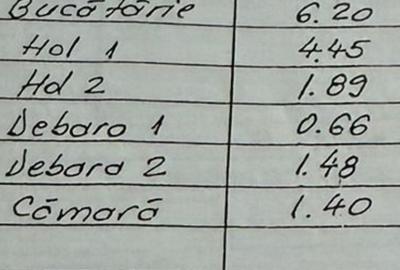 Bucătărie 6.20
Hol 1 4.45
Hol 2 1.89
Debara 1 0.66
Debara 2 1.48
Cămară 1.40